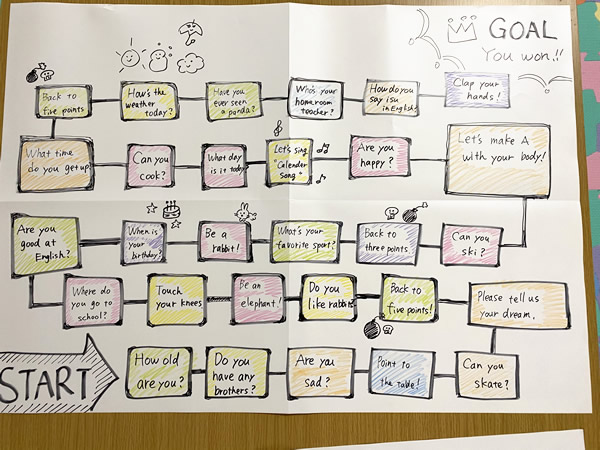 GOAL
You won.!!
Back to
five points
How's the
weather
today?
Have you
ever seen
a panda?
Who's your
homeroom
teacher?
How do you
say isu
in English?
Clap your
hands!
What time
do you get up
Can you
cook?
What day
is it today
Let's sing
"Calender
Song"
Are you
happy?
Let's make A
with your body!
Are you
good at
English?
When is
your
birthday?
Be a
rabbit!
What's your
favorite sport?
Back to
three points
Can you
ski?
Where do
you go to
school?
Touch
your knees
Be an
elephant!
Do you
like rabbit?
Back to
five points!
Please tell us
your dream.
START
How old
are you?
Do you
have any
brothers?
Are you
sad?
Point to
the table!
Can you
skate?